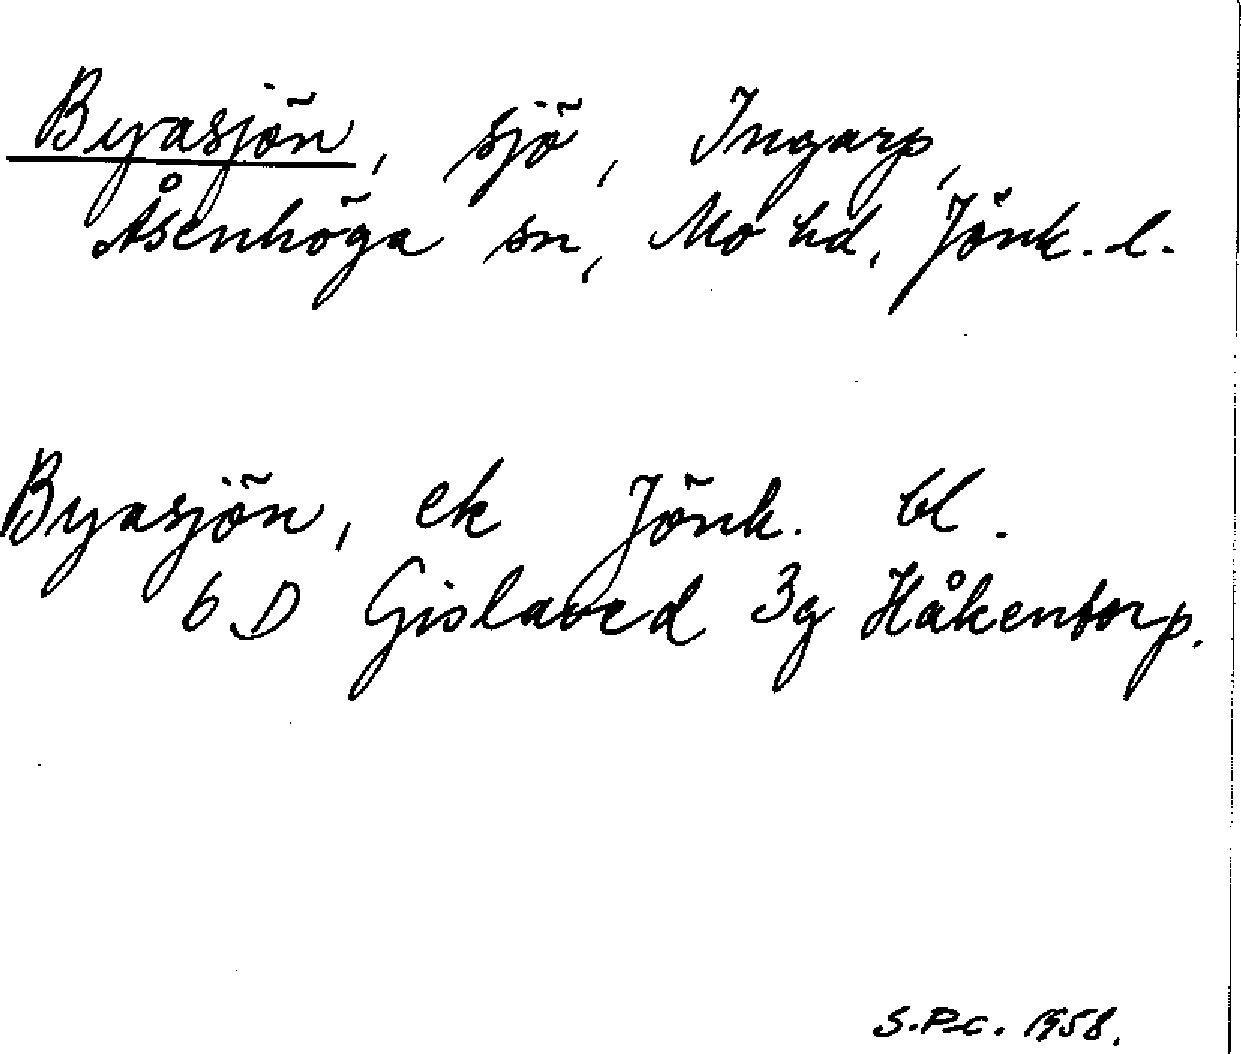 Byasjön, sjö, Ingarp,
Åsenhöga sn, Mo hd, Jönk. l.
Byasjön, ek Jönk. bl.
6 D Gislaved 3g Håkentorp.
S.P.C. 1958.